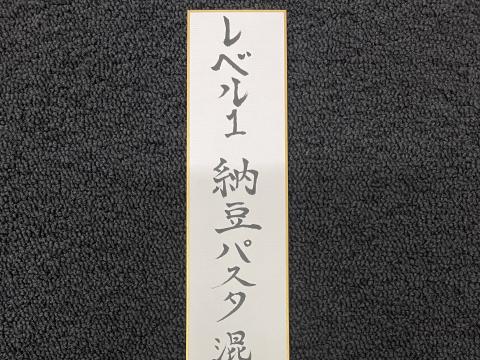 レベル1 納豆パスタ混